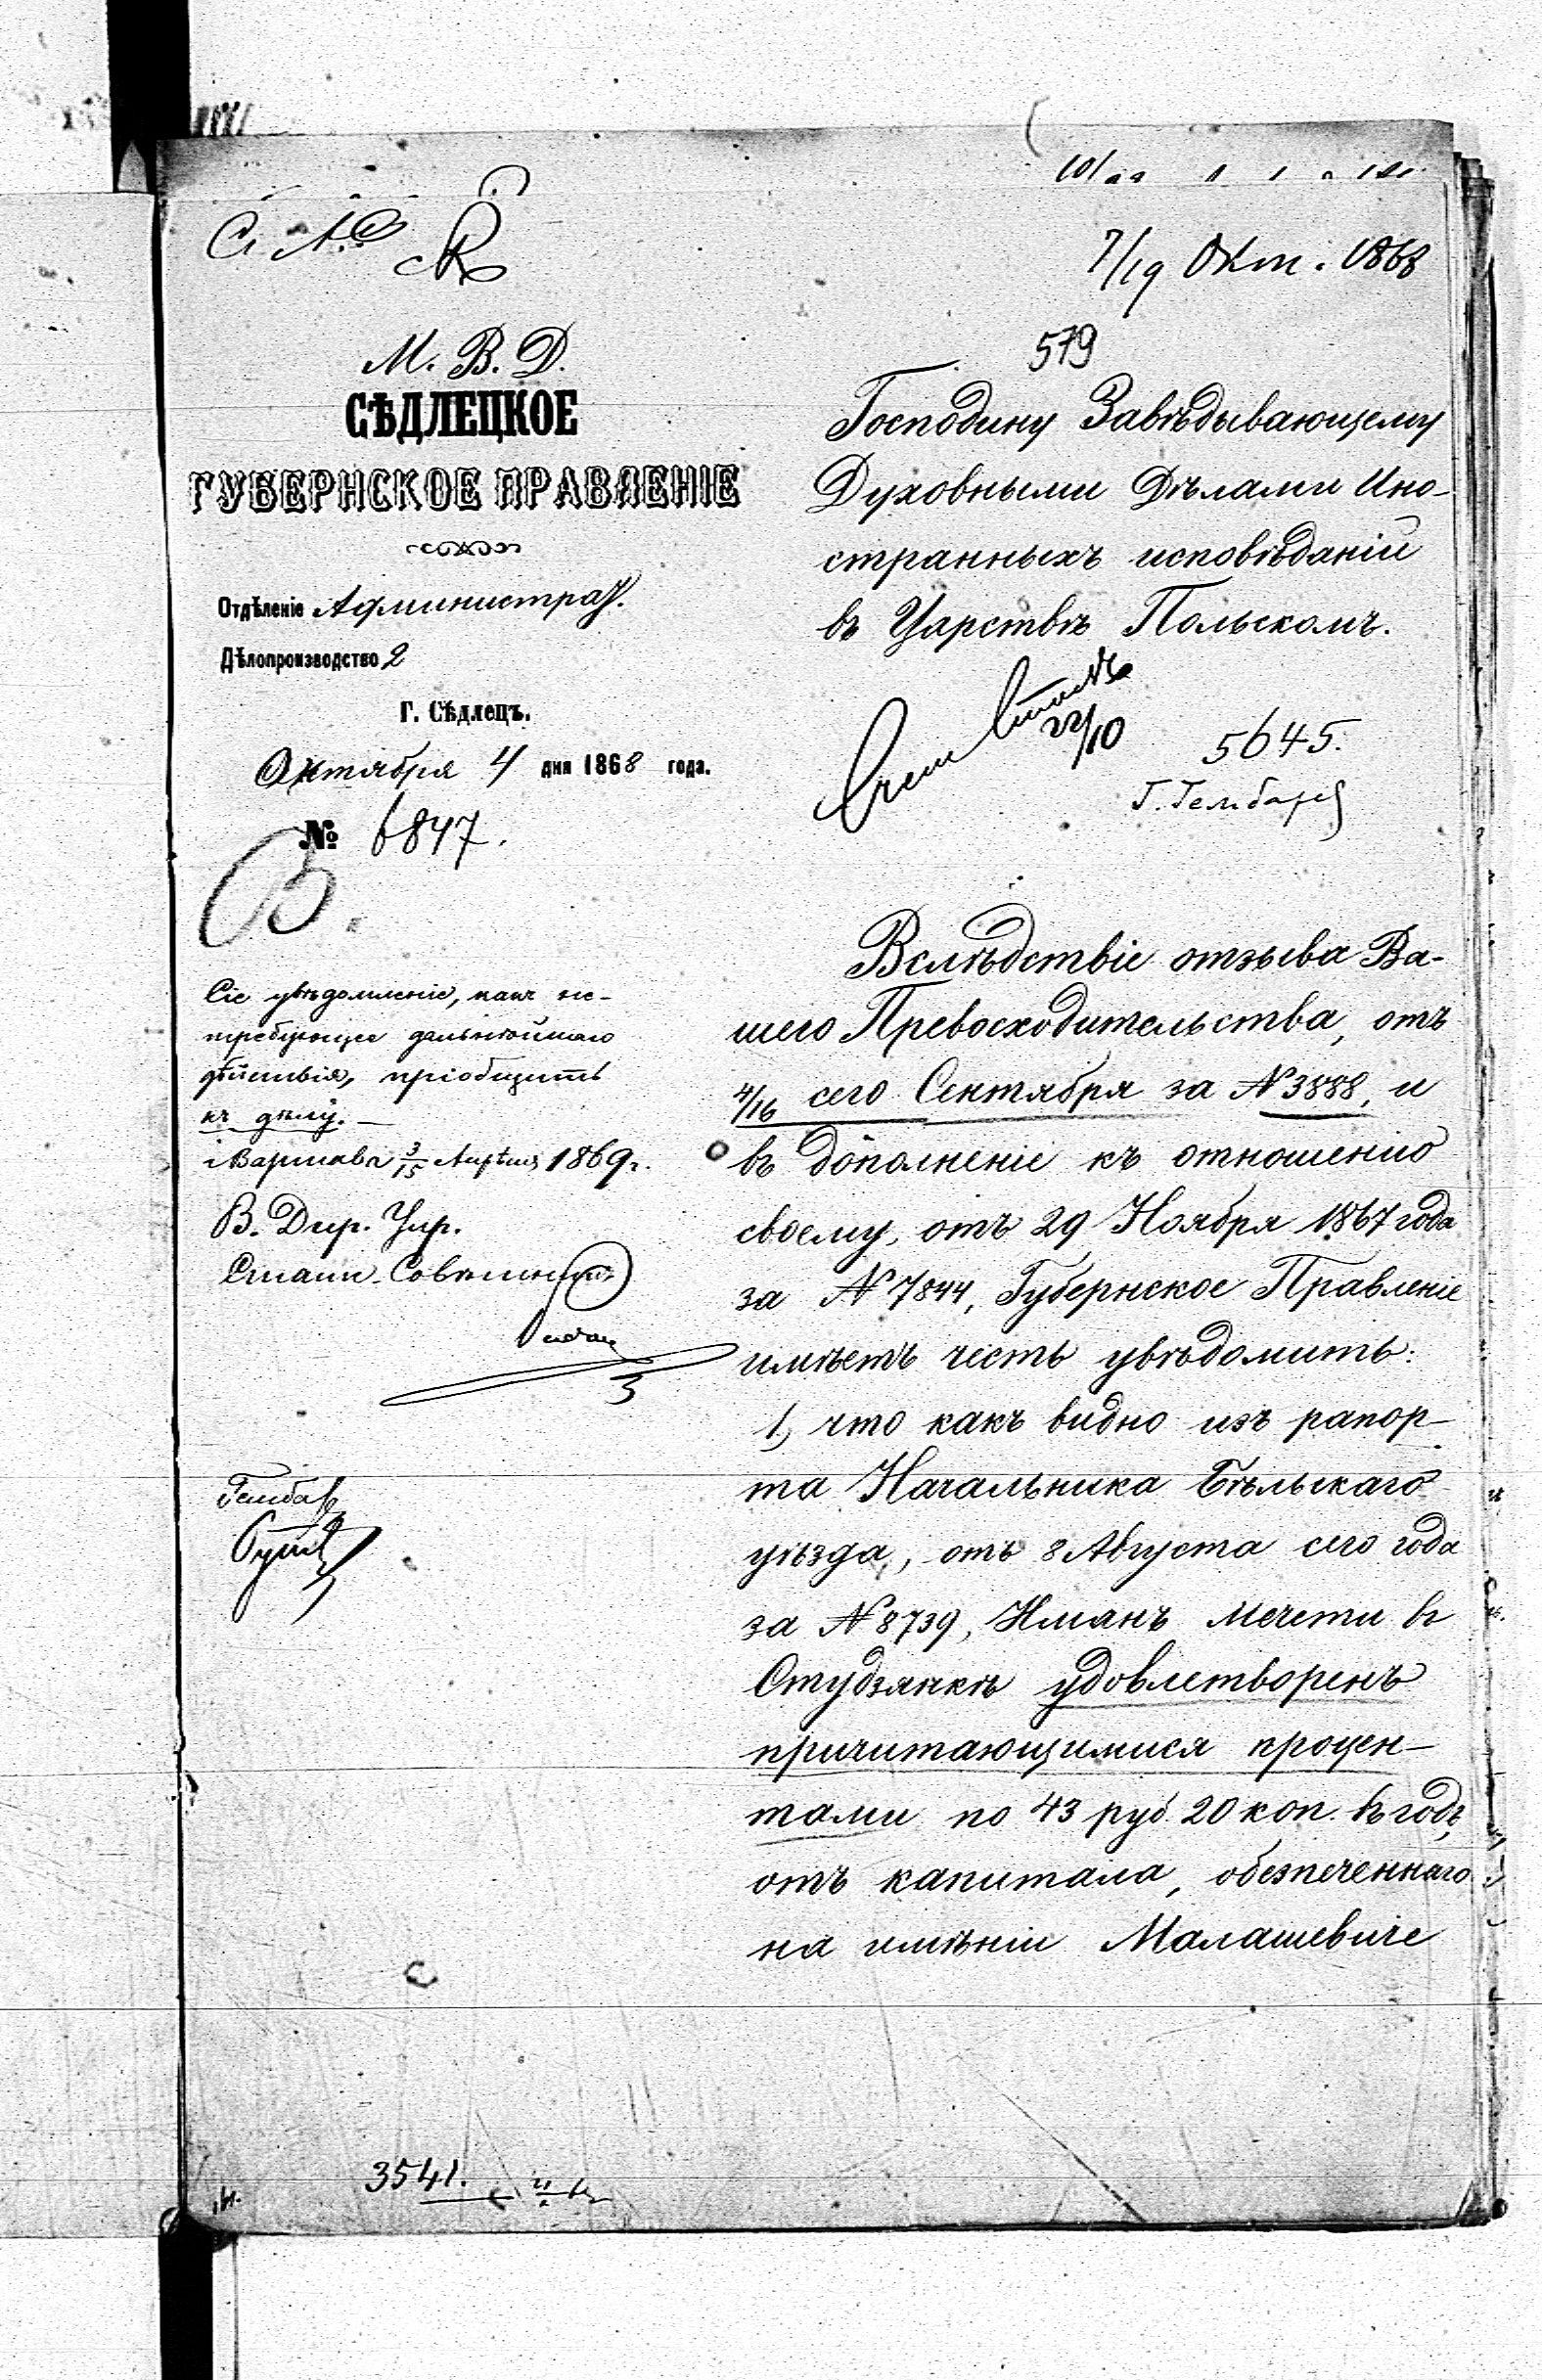 7/19 Окт. 1868
579
М. В. Д.
СѢДЛЕЦКОЕ
ГУБЕРНСКОЕ ПРАВЛЕНІЕ
Отдѣленіе Администрат.
Дѣлопроизводство 2
Г. Сѣдлецъ.
Октября 4 дня 1868 года.
№ 6847.
В.
Господину Завѣдывающему
Духовными Дѣлами Ино-
странныхъ исповѣданій
въ Царствѣ Польскомъ.
22/10
5645.
Г. Гембар
Сіе увѣдомленіе, какъ не-
требующее дальнѣйшаго
дѣйствія, пріобщить
къ дѣлу.
Варшава 3/15 Апрѣля 1869 г.
В. Дир. Упр.
Статс. Совѣтникъ
Гембар
Вслѣдствіе отзыва Ва-
шего Превосходительства, отъ
4/16 сего Сентября за № 3888, и
въ дополненіе къ отношенію
своему, отъ 29 Ноября 1867 года
за № 7844, Губернское Правленіе
имѣетъ честь увѣдомить:
1, что какъ видно изъ рапор-
та Начальника Бѣльскаго
уѣзда, отъ 8 Августа сего года
за № 8739, Иманъ Мечети въ
Студзянкѣ удовлетворенъ
причитающимися процен-
тами по 43 руб. 20 коп. въ годъ,
отъ капитала, обезпеченнаго
на имѣніи Малашевиче
3541.